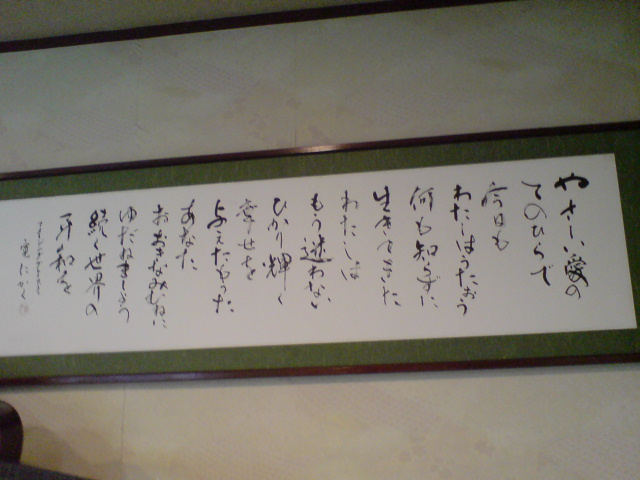 やさしい愛の
てのひらで
今日も
わたしはうたおう
何も知らずに
生きてきた
わたしは
もう迷わない
ひかり輝く
幸せを
与えたもうた
あなた
おおきなみむねに
ゆだねましょう
続く世界の
平和を